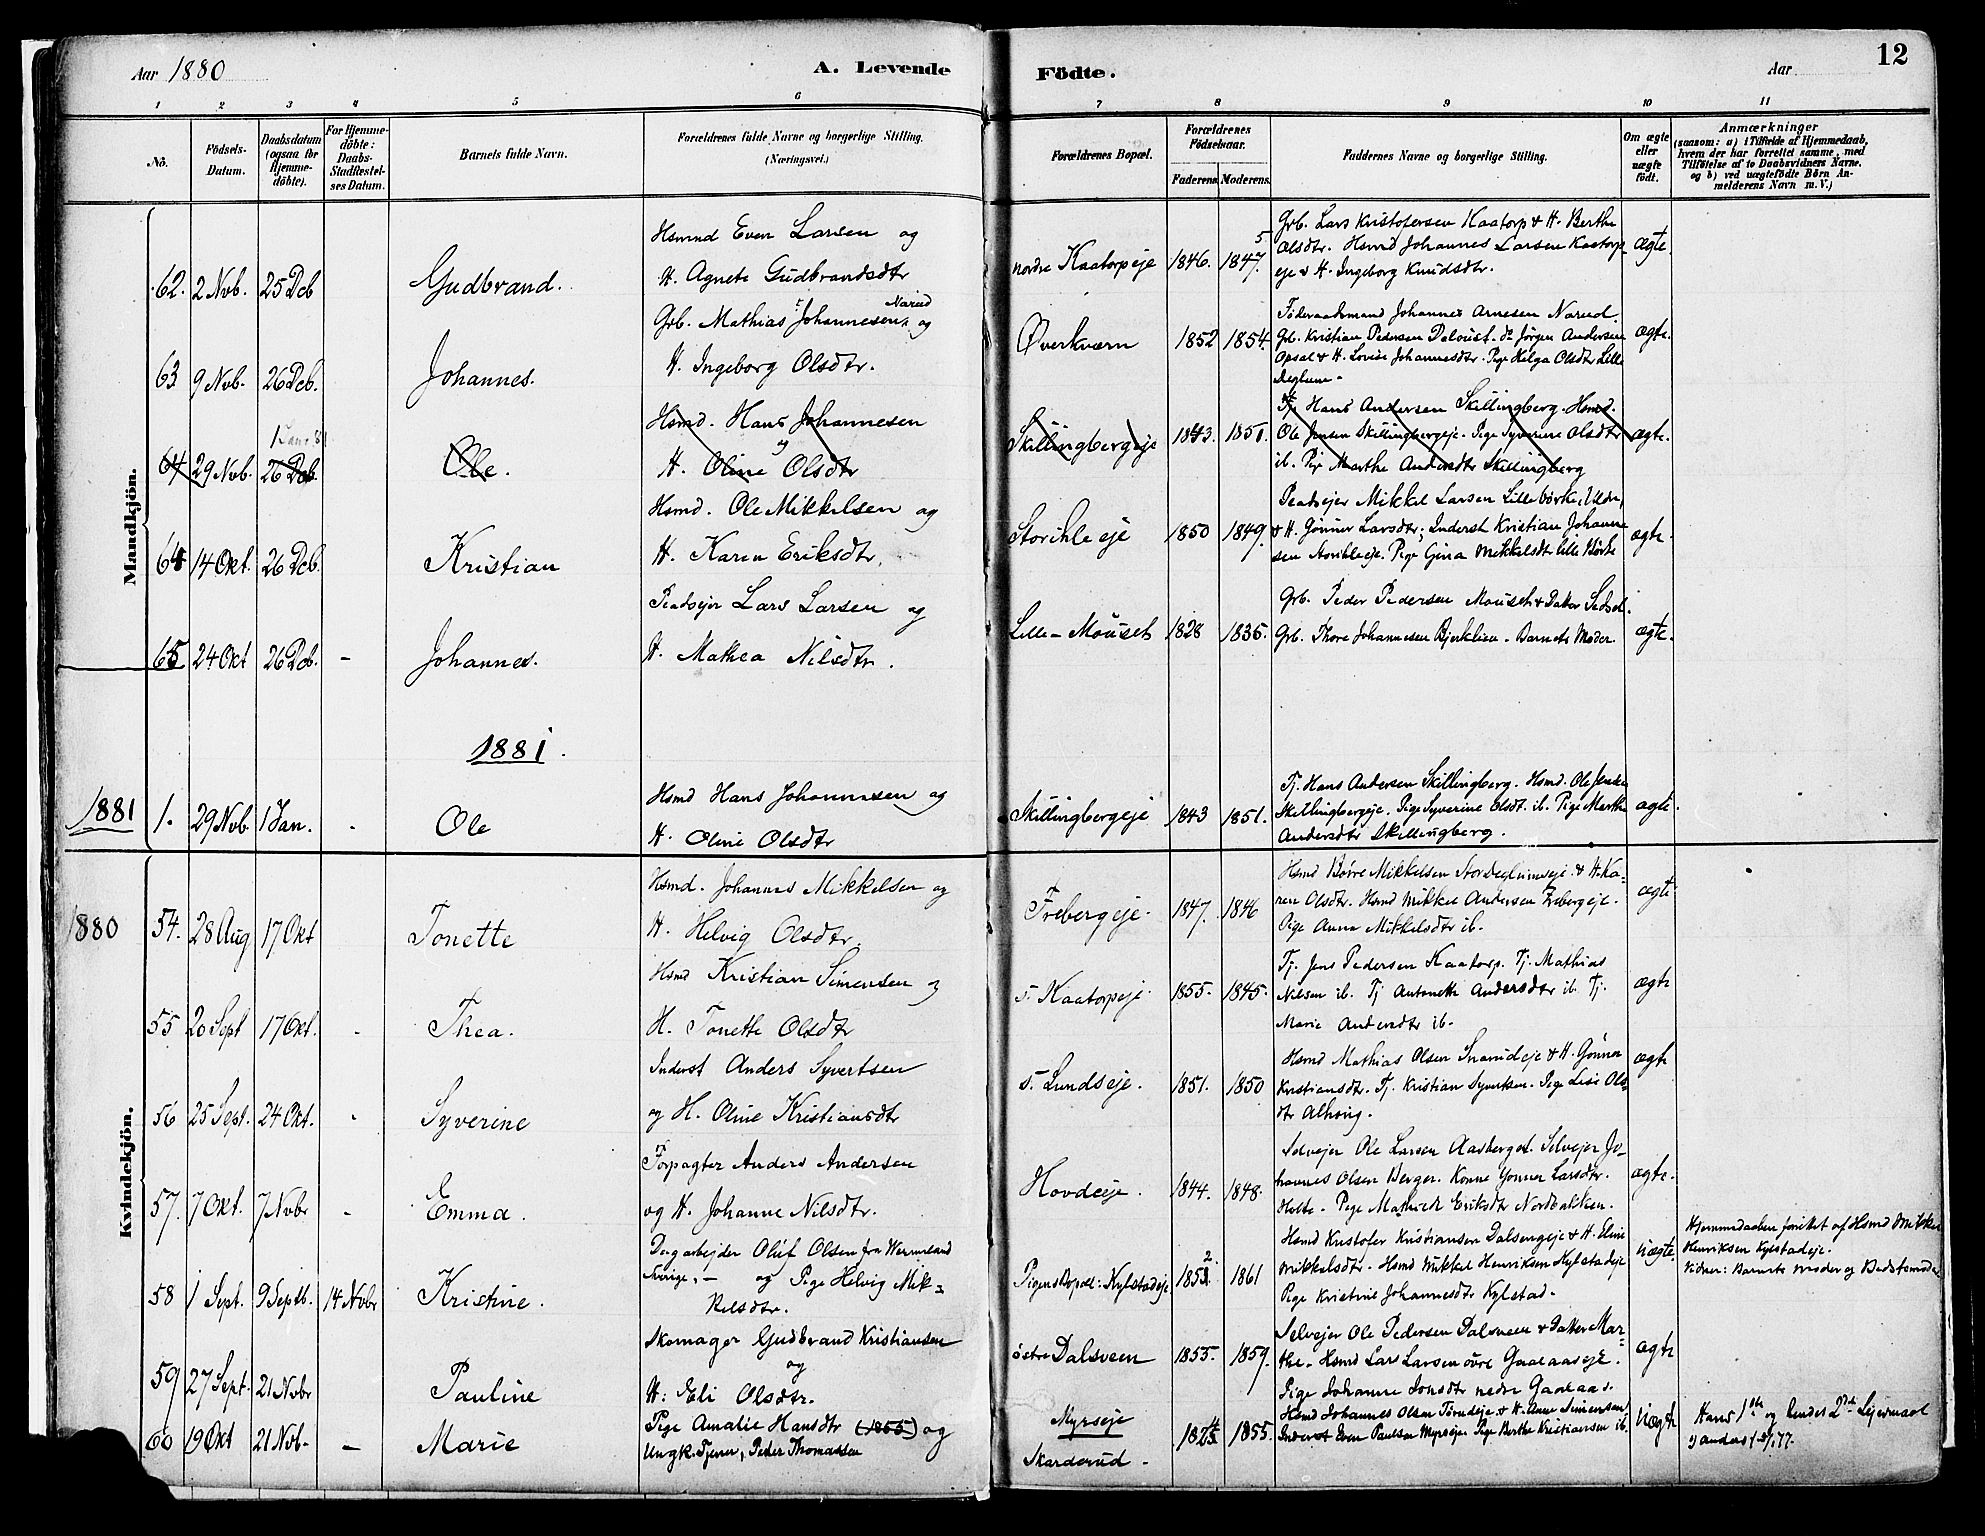 Aar 1880
A. Levende
Födte.
Aar
12
1 2 3 4 5 6 7 8 9 10 11
No.
Födsels-
Datum.
Daabsdatum
(ogsaa for
Hjemme-
döbte).
For Hjemme-
döbte:
Daabs-
Stadfæstel-
ses Datum.
Barnets fulde Navn.
Forældrenes fulde Navne og borgerlige Stilling.
(Næringsvei.)
Forældrenes Bopæl.
Forældrenes
Födselsaar.
Faderens. Moderens.
Faddernes Navne og borgerlige Stilling.
Om ægte
eller
uægte
födt.
Anmærkninger
(saasom: a) i Tilfælde af Hjemmedaab,
hvem der har forrettet samme, med
Tilföielse af to Daabsvidners Navne.
og b) ved uægtefödte Börn An-
melderens Navn m. V.)
Mandkjön.
62. 2 Nvb. 25 Dcb Gudbrand.
Hsmnd Even Larsen og
H. Agnete Gudbrandsdtr
nordre Kaatorpeje 1846. 1847. 5
Grb. Lars Kristofersen Kaatorp & H. Berthe
Olsdtr. Hsmd Johannes Larsen Kaatorp-
eje & H. Ingeborg Knudsdtr.
ægte
63 9 Nvb. 26 Dcb. Johannes.
Grb. Mathias Johannesen Narud og
H. Ingeborg Olsdtr.
Øverkværn 1852 1854.
Föderaadsmand Johannes Arnesen Narud.
Grb. Kristian Pedersen Dalöust. do Jørgen Andersen
Opsal & H. Lovise Johannesdtr. Pige Helga Olsdtr Lille
Deglum.
ægte.
64 29 Nvb. 26 Dcb. 1 Janr 81 Ole.
Hsmd. Hans Johannesen
og
H. Oline Olsdtr
Skillingbergeje 1843. 1851.
Tj. Hans Andersen Skillingberg. Hsmd.
Ole Jensen Skillingbergeje. Pige Syverine Olsdtr
ib. Pige Marthe Andersdtr Skillingberg
ægte.
64 14 Okt. 26 Dcb. Kristian
Hsmd. Ole Mikkelsen og
H. Karen Eriksdtr.
Storihle eje 1850 1849.
Pladsejer Mikkel Larsen Lillebörke,
& H. Gönner Larsdtr; Inderst Kristian Johanne
sen Storihleeje. Pige Gina Mikkelsdtr Lille Börke
ægte.
65 24 Okt 26 Dcb. - Johannes.
Pladsejer Lars Larsen og
H. Mathea Nilsdtr.
Lille-Möuset 1828 1835.
Grb. Peder Pedersen Mouset & Datter Sidsel.
Grb. Thore Johannesen Bjerklien. Barnets Moder
ægte.
1881.
1881 1. 29 Nvb 1 Jan. - Ole
Hsmd Hans Johannesen og
H. Oline Olsdtr
Skillingbergeje 1843 1851.
Tj. Hans Andersen Skillingberg. Hsmd. Ole Jensen
Skillingbergeje. Pige Syverine Olsdt. ib. Pige Marthe
Andersdtr Skillingberg.
ægte.
Kvindekjön.
1880 54. 28 Aug 17 Okt Tonette
Hsmd. Johannes Mikkelsen og
H. Helvig Olsdtr.
Frebergeje. 1847. 1846
Hsmd Börre Mikkelsen Stordeglumseje & H. Ka-
ren Olsdtr. Hsmd Mikkel Andersen Frebergeje.
Pige Anne Mikkelsdtr ib.
ægte
55 20 Sept 17 Okt. - Thea.
Hsmd Kristian Simensen og
H. Tonette Olsdtr
s. Kaatorpeje. 1855. 1845.
Tj. Jens Pedersen Kaatorp. Tj. Mathias
Nilsen ib. Tj Antonette Andersdtr ib. Tj.
Marie Andersdtr ib.
ægte
56 25 Sept. 24 Okt. - Syverine
Inderst Anders Syvertsen
og H. Oline Kristiansdtr
s. Lundseje. 1851. 1850
Hsmd Mathias Olsen Snarudeje & H. Gönner
Kristiansdtr. Tj. Kristian Syvertsen. Pige Lise Ols-
dtr Alhaug.
ægte
57. 7 Okt. 7 Nvbr - Emma.
Forpagter Anders Andersen
og H. Johanne Nilsdtr.
Hovdeeje. 1844. 1848.
Selvejer Ole Larsen Aasberget. Selvejer Jo-
hannes Olsen Berger. Konne Gönner Larsdtr.
Holte. Pige Mathea Eriksdtr Nordbakken.
ægte.
58 1 Sept. 9 Septb. 14 Nvbr Kristine.
Dagarbejder Oluf Olsen fra Wermeland
Sverige, - og Pige Helvig Mik-
kelsdtr.
Pigens Bopæl: Kylstadeje 1852 1861
Hsmd Kristofer Kristiansen Dalsengeje & H. Eline
Mikkelsdtr. Hsmd Mikkel Henriksen Kylstadeje
Pige Kristine Johannesdtr Kylstad.
uægte
Hjemmedaaben forrettet af Hsmd Mikkel
Henriksen Kylstadeje.
Vidner: Barnets Moder og Bedstemoder
59 27 Sept. 21 Nvbr Pauline
Skomager Gudbrand Kristiansen
og
H. Eli Olsdtr.
østre Dalsveen 1855. 1859.
Selvejer Ole Pedersen Dalsveen & Datter Mar-
the. Hsmd Lars Larsen övre Gaalaaseje.
Pige Johanne Jonsdtr nedre Gaalaas.
ægte
60 19 Okt 21 Nvb. - Marie
Pige Amalie Hansdtr (1855) og
Ungk. Tjener, Peder Thomassen
Myrseje
Skarderud - 1855.
Hsmd Johannes Olsen Törudeje & H. Anne Simensen
Inderst Even Paulsen Myrseje Pige Berthe Kristiansen ib.
Uægte
Hans 1ste og hendes 2det Lejermaal